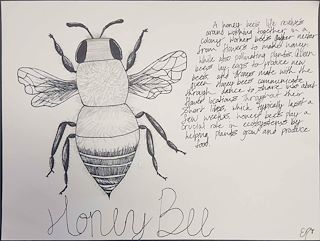 A honey bees life revolves
around working together in a
colony. Worker bees gather nectar
from flowers to make honey
while also pollinating plants. Queen
bees lay eggs to produce new
bees and drones mate with the
queen. Honey bees communicate
through dance to share info about
flower locations. Throughout their
short lives, which typically last a
few weeks, honey bees play a
crucial role in ecosystems by
helping plants grow and produce
food.
Honey Bee